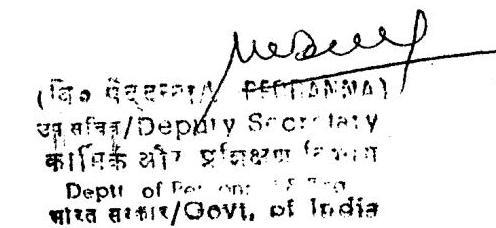 PEDDANNA)
उप सचिव/Deputy Secretary
कार्मिक और प्रशिक्षण विभाग
Deptt of
भारत सरकार/Govt. of India